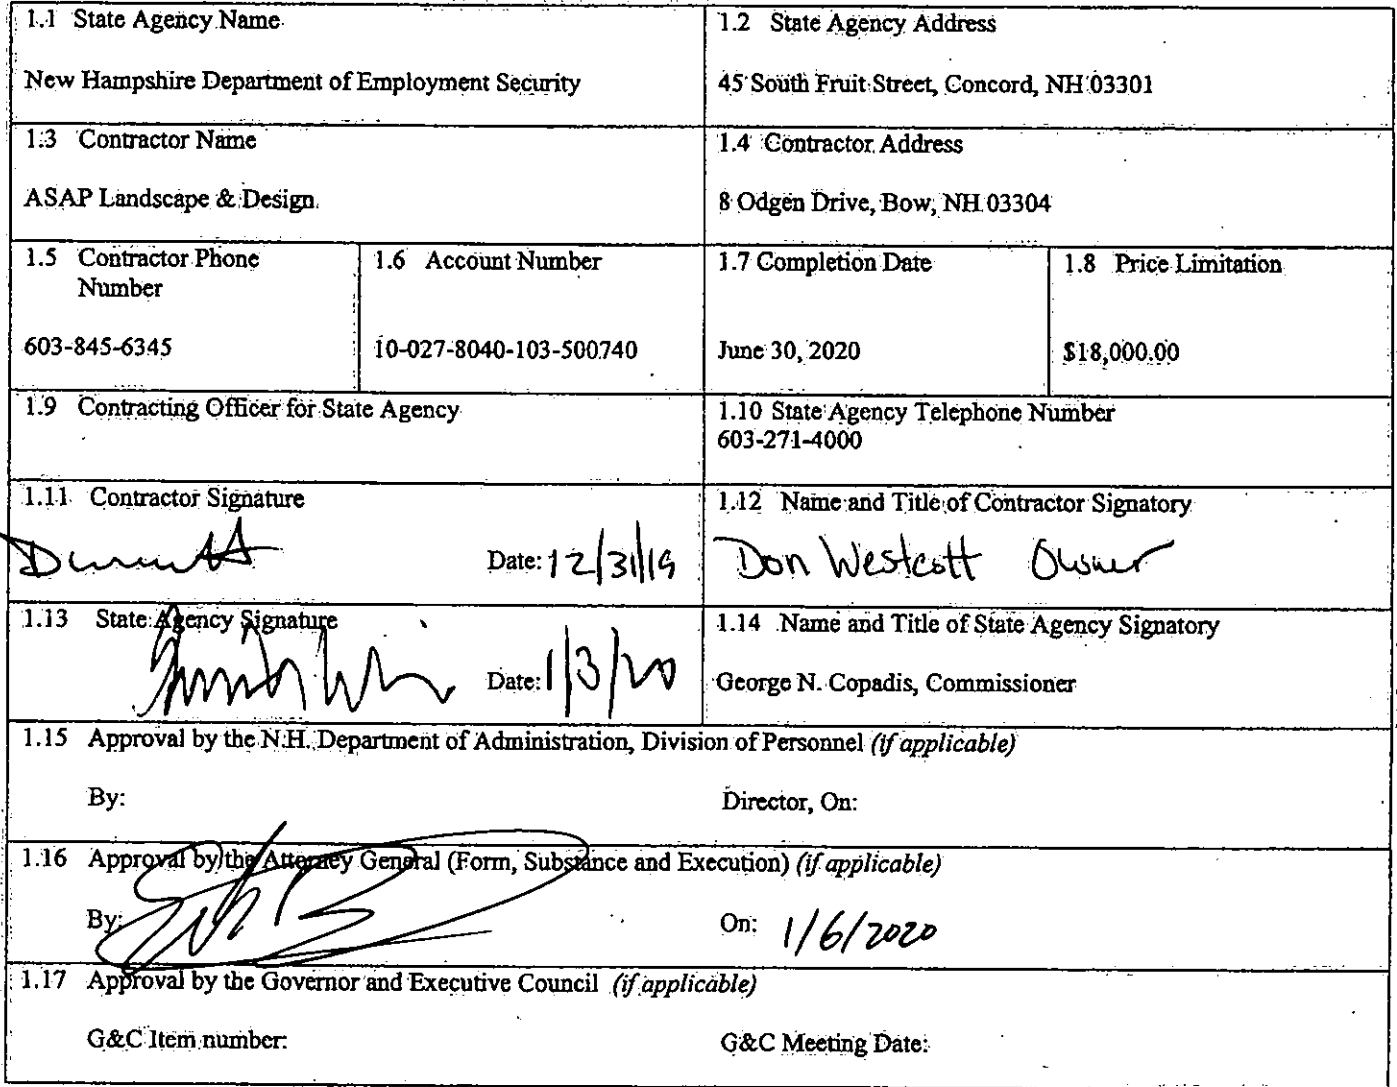 1.1 State Agency Name
New Hampshire Department of Employment Security
1.2 State Agency Address
45 South Fruit Street, Concord, NH 03301
1.3 Contractor Name
ASAP Landscape & Design
1.4 Contractor Address
8 Odgen Drive, Bow, NH 03304
1.5 Contractor Phone
Number
603-845-6345
1.6 Account Number
10-027-8040-103-500740
1.7 Completion Date
June 30, 2020
1.8 Price Limitation
$18,000.00
1.9 Contracting Officer for State Agency
1.10 State Agency Telephone Number
603-271-4000
1.11 Contractor Signature
Date: 12/31/19
1.12 Name and Title of Contractor Signatory
Don Westcott Owner
1.13 State Agency Signature
Date: 1/3/20
1.14 Name and Title of State Agency Signatory
George N. Copadis, Commissioner
1.15 Approval by the N.H. Department of Administration, Division of Personnel (if applicable)
By: Director, On:
1.16 Approval by the Attorney General (Form, Substance and Execution) (if applicable)
By: On: 1/6/2020
1.17 Approval by the Governor and Executive Council (if applicable)
G&C Item number: G&C Meeting Date: